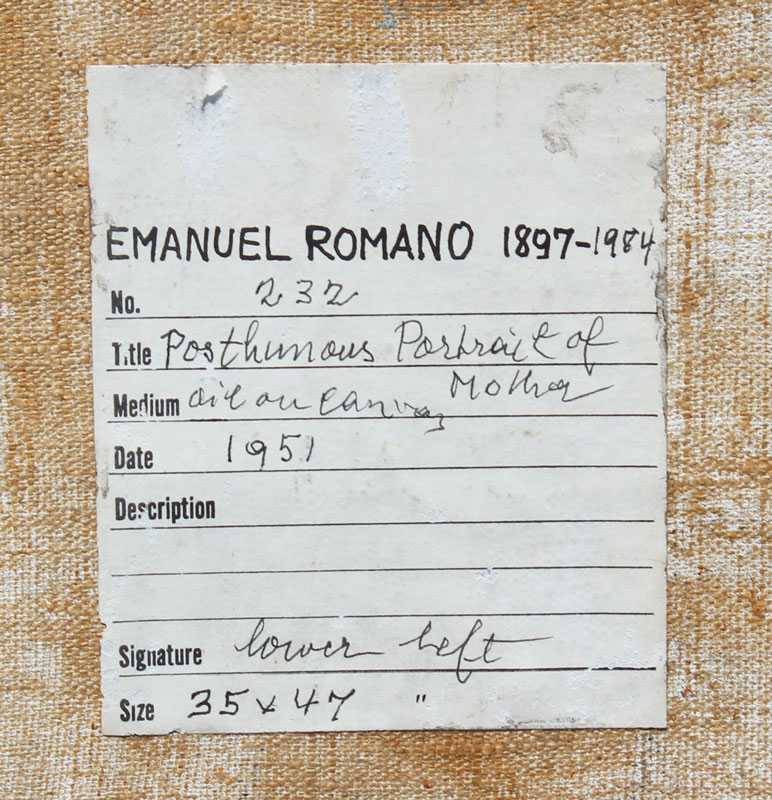 EMANUEL ROMANO 1897-1984
No. 232
Title Posthumous Portrait of
Mother
Medium oil on canvas
Date 1951
Description
Signature lower left
Size 35 x 47 "